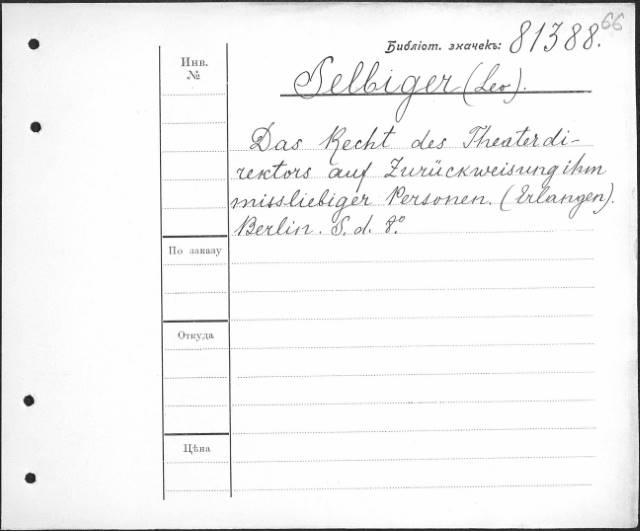 66
Библіот. значекъ: 81388.
Инв.
№
Selbiger (Leo).
Das Recht des Theaterdi-
rektors auf Zurückweisung ihm
missliebiger Personen. (Erlangen).
Berlin. S. d. 8°.
По заказу
Откуда
Цѣна